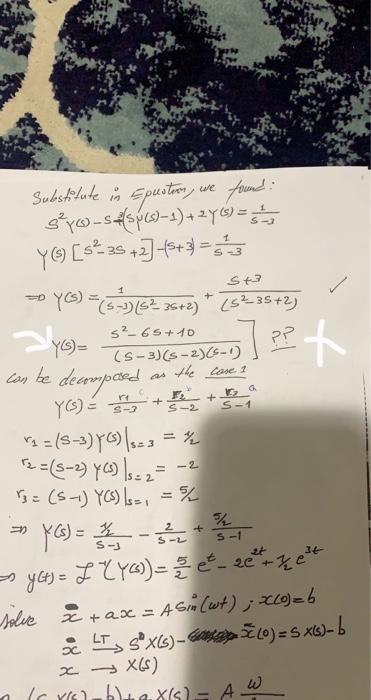 Substitute in Equation, we found:
s²Y(s)-s-3(sY(s)-1)+2Y(s) = 1/(s-3)
Y(s)[s²-3s+2]-(s+3) = 1/(s-3)
=> Y(s) = 1/((s-3)(s²-3s+2)) + (s+3)/(s²-3s+2) ✓
Y(s) = (s²-6s+10)/((s-3)(s-2)(s-1)) ] ??
can be decomposed as the case 1
Y(s) = r1/(s-3) + r2/(s-2) + r3/(s-1)
c b a
r1 = (s-3)Y(s)|s=3 = 1/2
r2 = (s-2) Y(s)|s=2 = -2
r3 = (s-1) Y(s)|s=1 = 5/2
=> Y(s) = (1/2)/(s-3) - 2/(s-2) + (5/2)/(s-1)
=> y(t) = L⁻¹(Y(s)) = 5/2 e^t - 2e^2t + 1/2 e^3t
Solve ẋ + ax = A Sin(wt) ; x(0)=b
ẋ LT→ s X(s)- x(0) = s X(s)-b
x → X(s)
(s X(s)-b)+a X(s) = A w